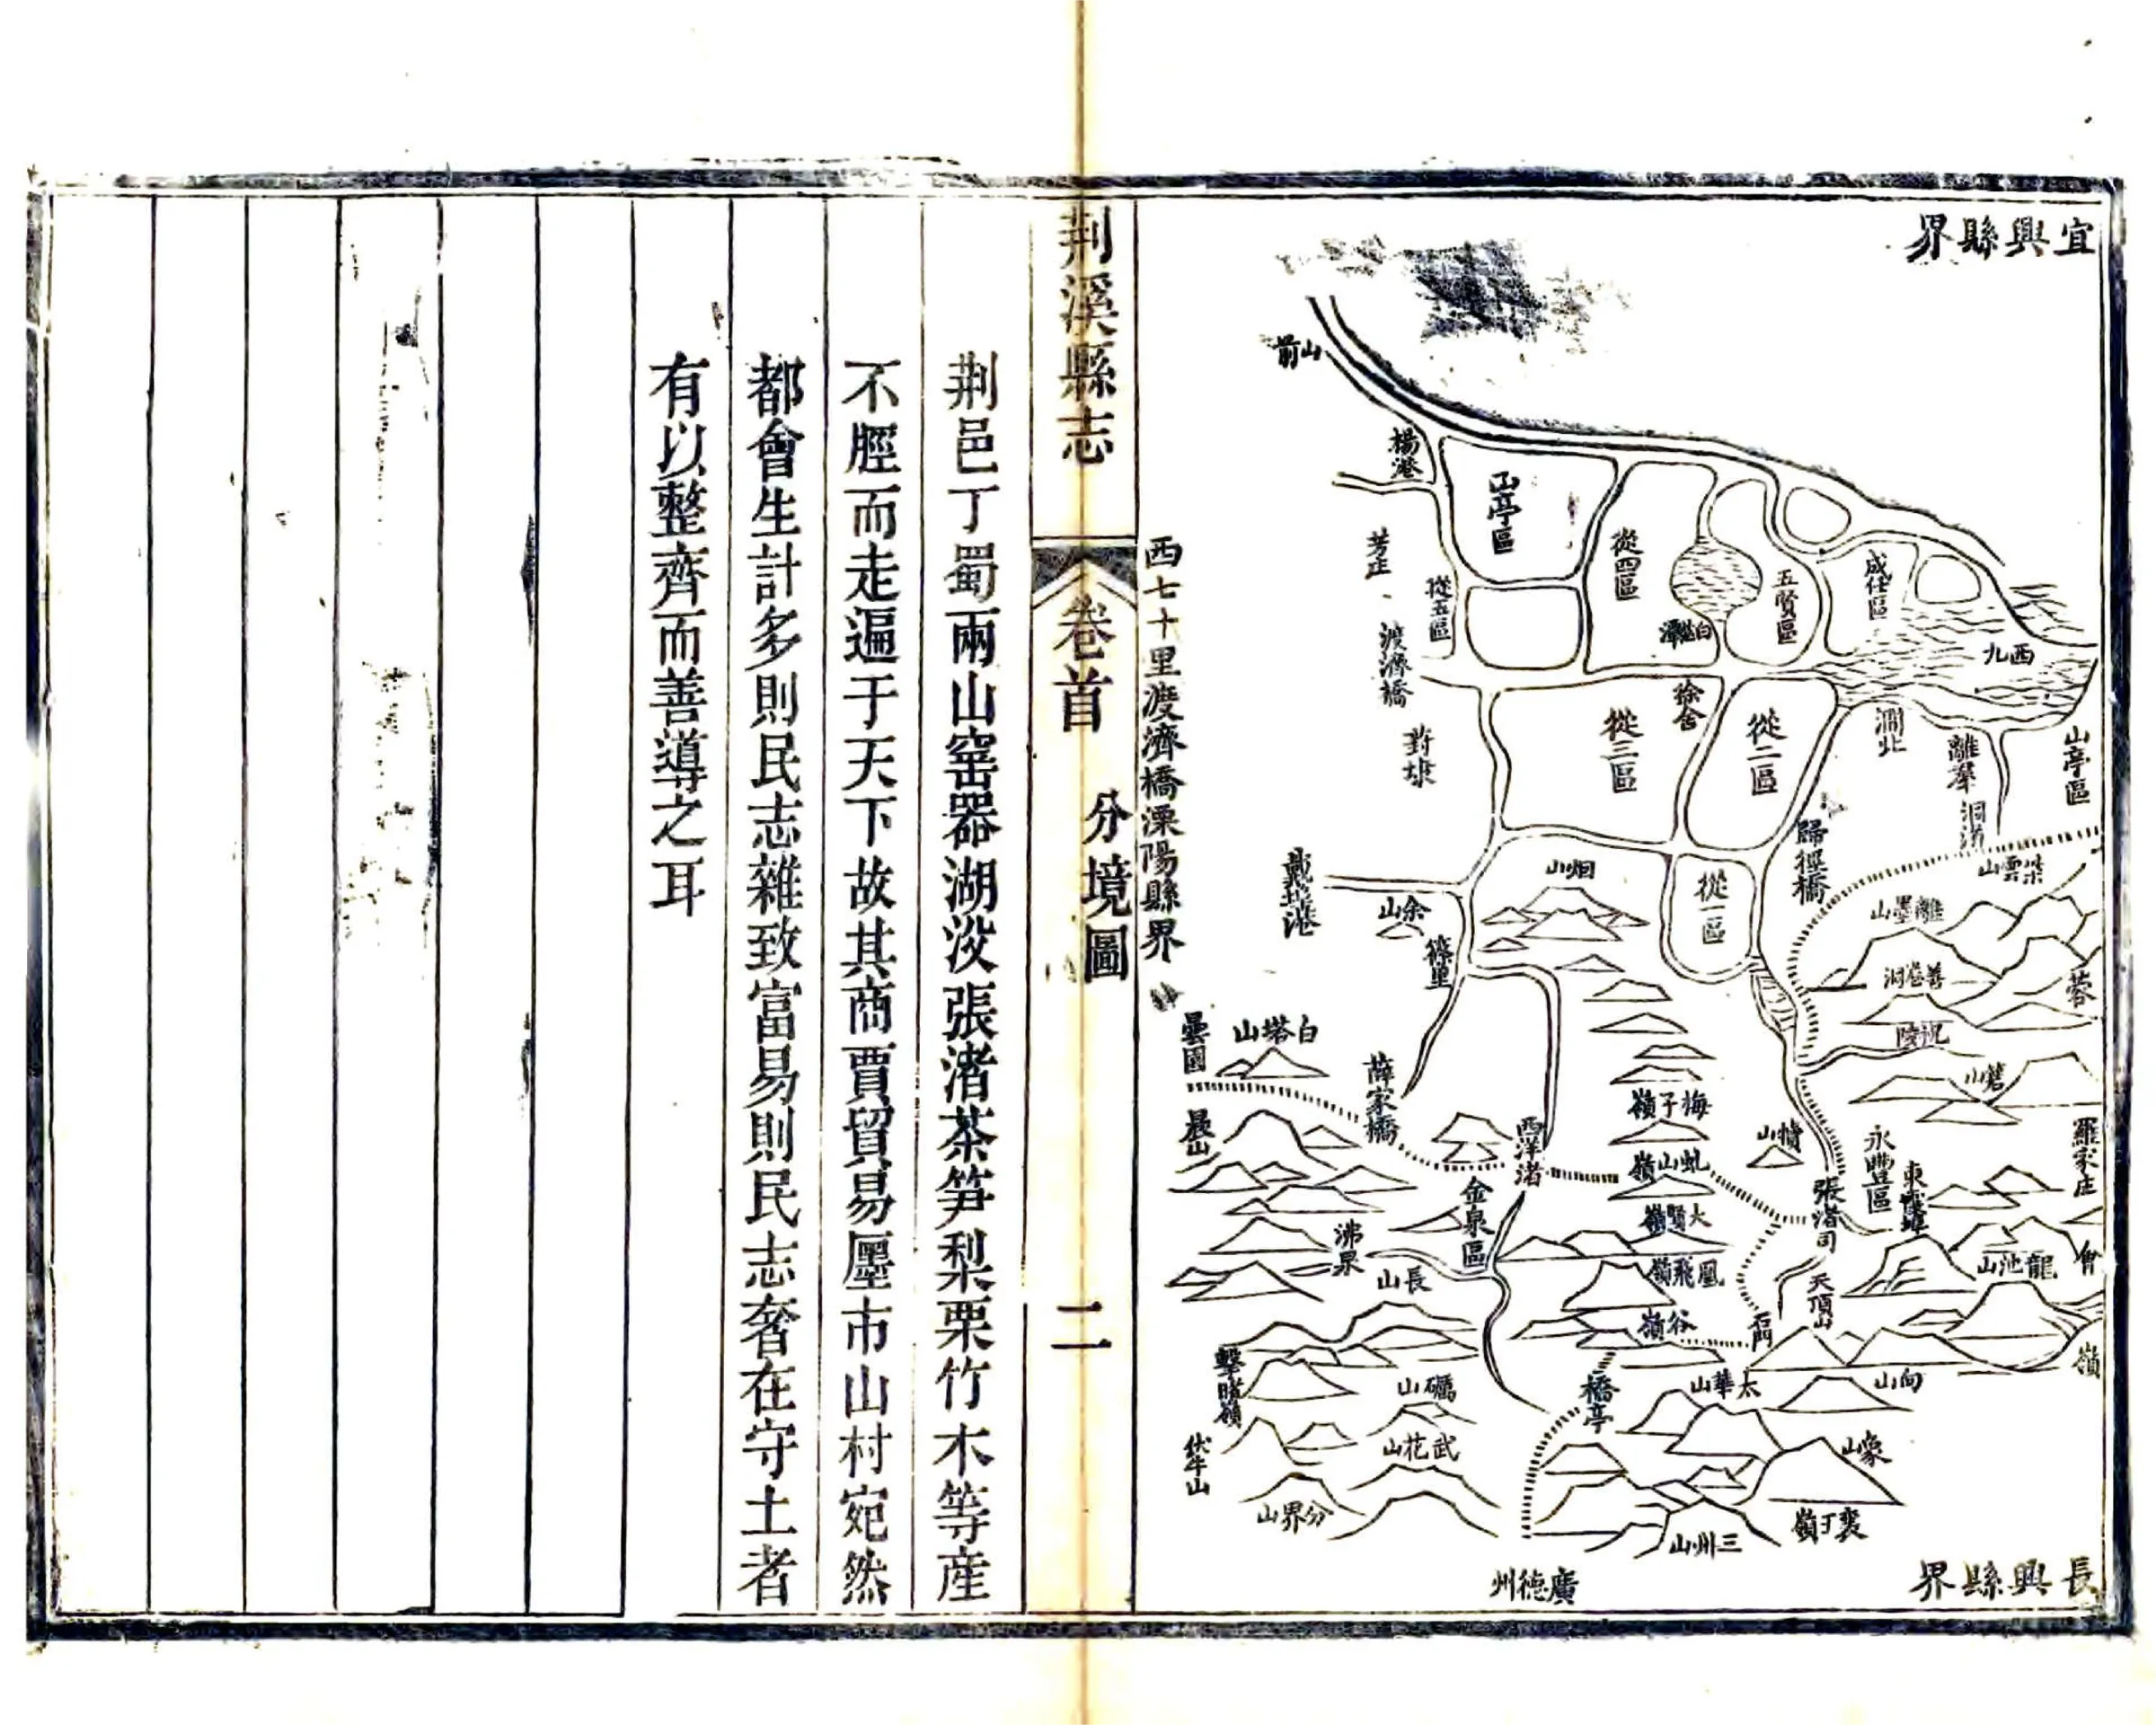 宜興縣界
山前
楊港
山亭區
從四區
五賢區
成任區
芳庄
從五區
渡濟橋
西九
徐舍
從三區
從二區
澗北
離墨
山亭區
歸徑橋
戴埠港
山烟
從一區
余山
篠里
離墨山
善卷洞
祝陵
白塔山
薛家橋
梅子嶺
西洋渚
虬山嶺
永豐區
張渚司
羅家庄
金泉區
大賢嶺
沸泉
長山
鳳飛嶺
天頂山
龍池山
谷嶺
石門
嶺
橋亭
太華山
向山
武花山
伏牛山
象山
分界山
三州山
廣德州
長興縣界
西七十里渡濟橋溧陽縣界
荆溪縣志
卷首
分境圖
二
荆邑丁蜀兩山窰器湖㳇張渚茶笋梨栗竹木等産
不脛而走遍于天下故其商賈貿易廛市山村宛然
都會生計多則民志雜致富易則民志奢在守土者
有以整齊而善導之耳